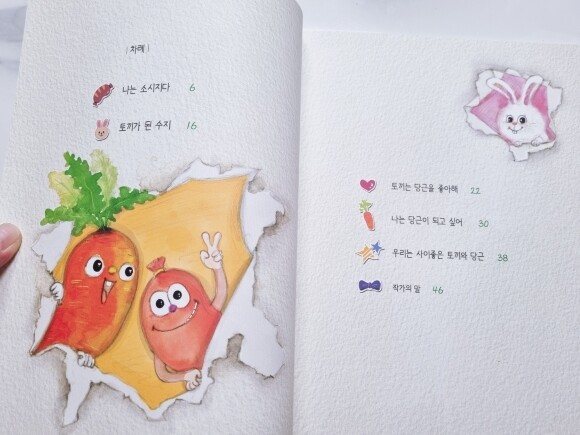 |차례|
나는 소시지다 6
토끼가 된 수지 16
토끼는 당근을 좋아해 22
나는 당근이 되고 싶어 30
우리는 사이좋은 토끼와 당근 38
작가의 말 46